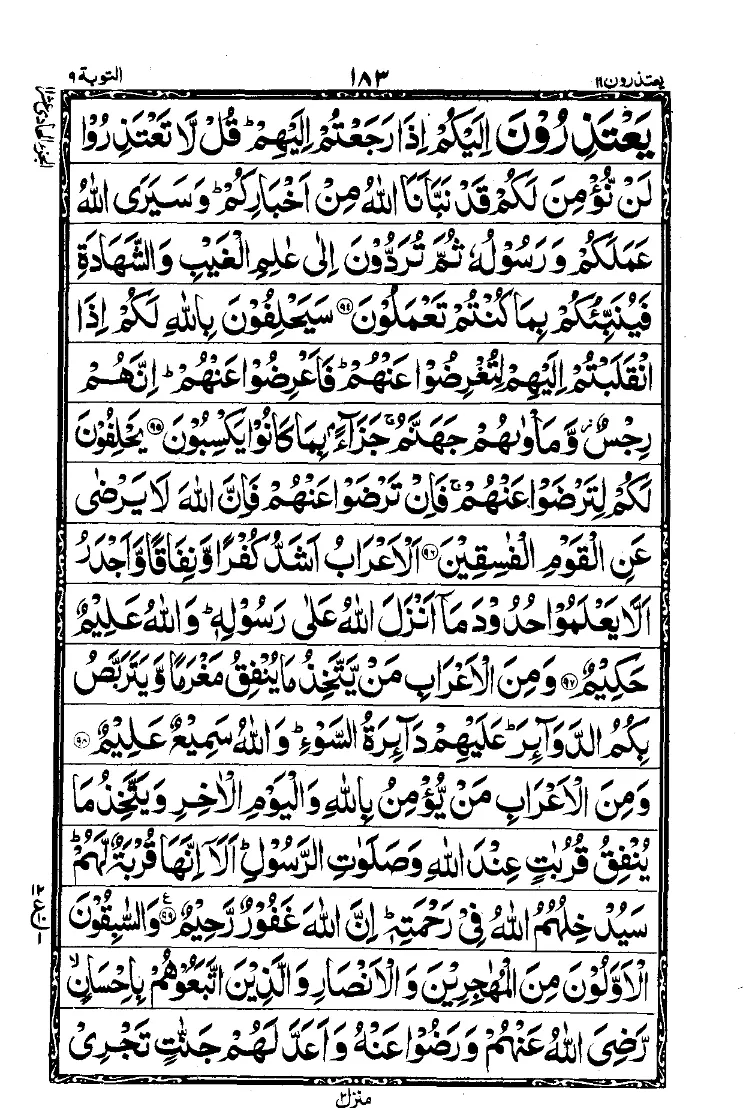 يعتذرون ١١ ١٨٣ التوبة ٩
يَعْتَذِرُوْنَ اِلَيْكُمْ اِذَا رَجَعْتُمْ اِلَيْهِمْ ؕ قُلْ لَّا تَعْتَذِرُوْا
لَنْ نُّؤْمِنَ لَكُمْ قَدْ نَبَّاَنَا اللّٰهُ مِنْ اَخْبَارِكُمْ ؕ وَ سَيَرَى اللّٰهُ
عَمَلَكُمْ وَ رَسُوْلُهٗ ثُمَّ تُرَدُّوْنَ اِلٰى عٰلِمِ الْغَيْبِ وَ الشَّهَادَةِ
فَيُنَبِّئُكُمْ بِمَا كُنْتُمْ تَعْمَلُوْنَ ﴿۹۴﴾ سَيَحْلِفُوْنَ بِاللّٰهِ لَكُمْ اِذَا
انْقَلَبْتُمْ اِلَيْهِمْ لِتُعْرِضُوْا عَنْهُمْ ؕ فَاَعْرِضُوْا عَنْهُمْ ؕ اِنَّهُمْ
رِجْسٌ ؗ وَّ مَاْوٰىهُمْ جَهَنَّمُ ۚ جَزَآءًۢ بِمَا كَانُوْا يَكْسِبُوْنَ ﴿۹۵﴾ يَحْلِفُوْنَ
لَكُمْ لِتَرْضَوْا عَنْهُمْ ۚ فَاِنْ تَرْضَوْا عَنْهُمْ فَاِنَّ اللّٰهَ لَا يَرْضٰى
عَنِ الْقَوْمِ الْفٰسِقِيْنَ ﴿۹۶﴾ اَلْاَعْرَابُ اَشَدُّ كُفْرًا وَّ نِفَاقًا وَّ اَجْدَرُ
اَلَّا يَعْلَمُوْا حُدُوْدَ مَاۤ اَنْزَلَ اللّٰهُ عَلٰى رَسُوْلِهٖ ؕ وَ اللّٰهُ عَلِيْمٌ
حَكِيْمٌ ﴿۹۷﴾ وَ مِنَ الْاَعْرَابِ مَنْ يَّتَّخِذُ مَا يُنْفِقُ مَغْرَمًا وَّ يَتَرَبَّصُ
بِكُمُ الدَّوَآئِرَ ؕ عَلَيْهِمْ دَآئِرَةُ السَّوْءِ ؕ وَ اللّٰهُ سَمِيْعٌ عَلِيْمٌ ﴿۹۸﴾
وَ مِنَ الْاَعْرَابِ مَنْ يُّؤْمِنُ بِاللّٰهِ وَ الْيَوْمِ الْاٰخِرِ وَ يَتَّخِذُ مَا
يُنْفِقُ قُرُبٰتٍ عِنْدَ اللّٰهِ وَ صَلَوٰتِ الرَّسُوْلِ ؕ اَلَاۤ اِنَّهَا قُرْبَةٌ لَّهُمْ ؕ
سَيُدْخِلُهُمُ اللّٰهُ فِيْ رَحْمَتِهٖ ؕ اِنَّ اللّٰهَ غَفُوْرٌ رَّحِيْمٌ ﴿۹۹﴾ وَ السّٰبِقُوْنَ
الْاَوَّلُوْنَ مِنَ الْمُهٰجِرِيْنَ وَ الْاَنْصَارِ وَ الَّذِيْنَ اتَّبَعُوْهُمْ بِاِحْسَانٍ ۙ
رَّضِيَ اللّٰهُ عَنْهُمْ وَ رَضُوْا عَنْهُ وَ اَعَدَّ لَهُمْ جَنّٰتٍ تَجْرِيْ
منزل ٢